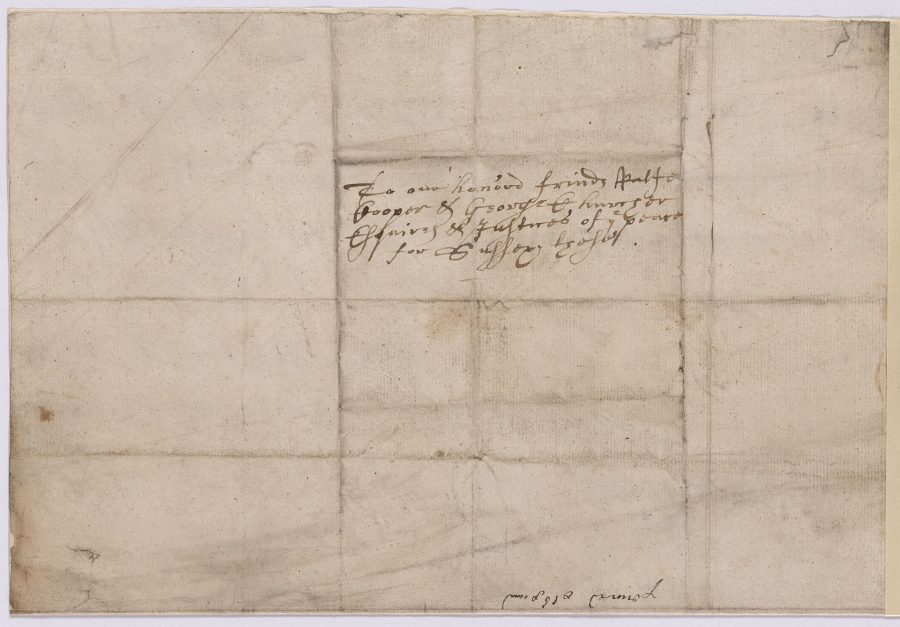 To our honord frinds Ralfe
Cooper & George Churcher
Esquires & Justices of ye peace
for Sussex these.